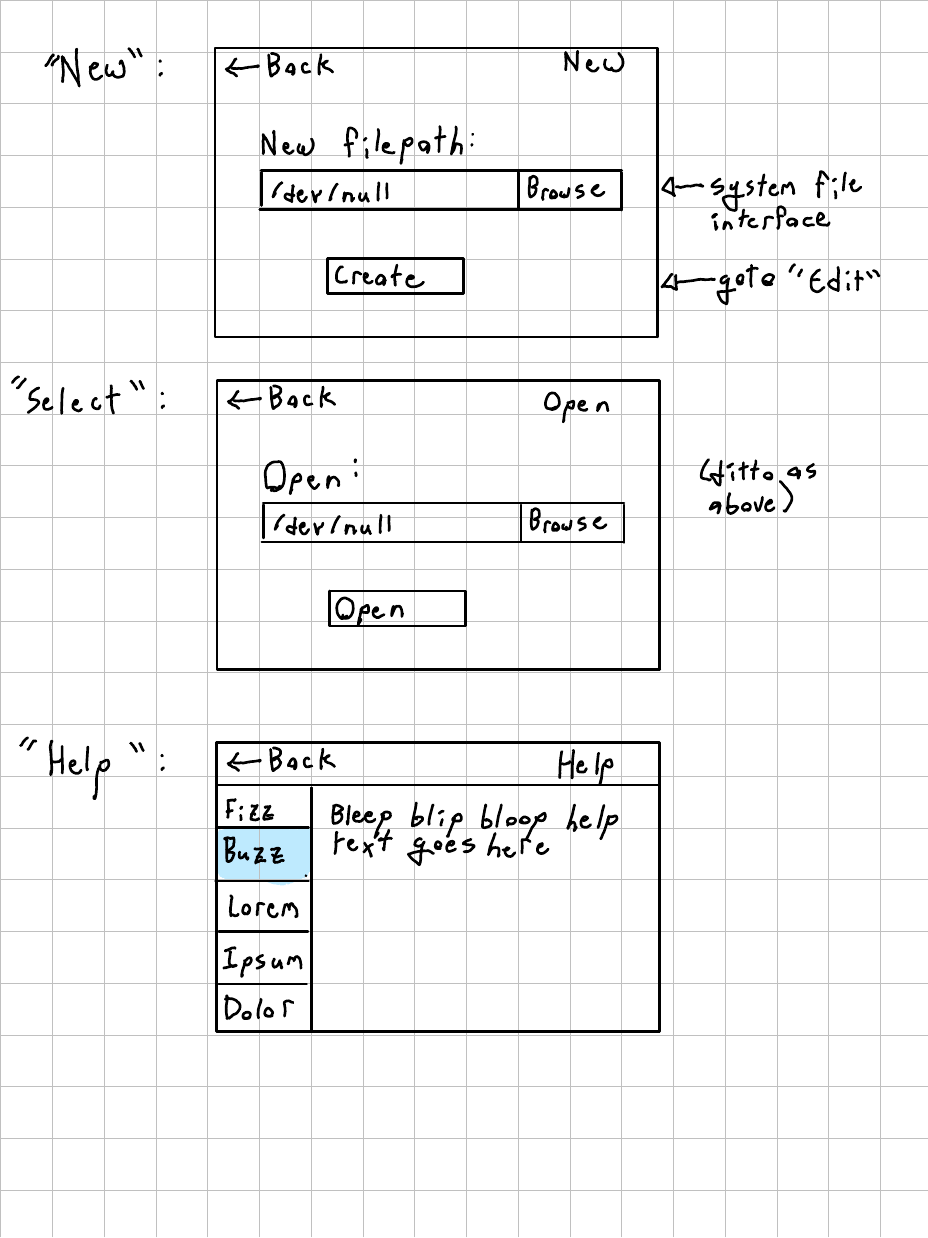 "New":
← Back New
New filepath:
/dev/null Browse
system file
interface
Create
goto "Edit"
"Select":
← Back Open
Open:
/dev/null Browse
(ditto as
above)
Open
"Help":
← Back Help
Fizz
Buzz
Lorem
Ipsum
Dolor
Bleep blip bloop help
text goes here